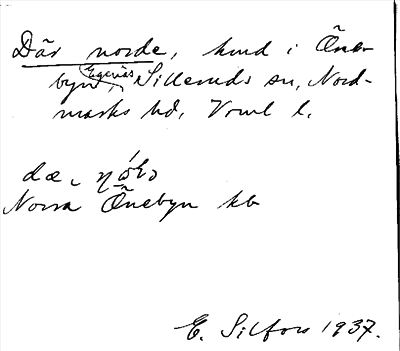 Där norde, hmd i Öne-
byn, Egenäs Silleruds sn, Nord-
marks hd, Vrml l.
Norra Önebyn kb
E. Silfors 1937.